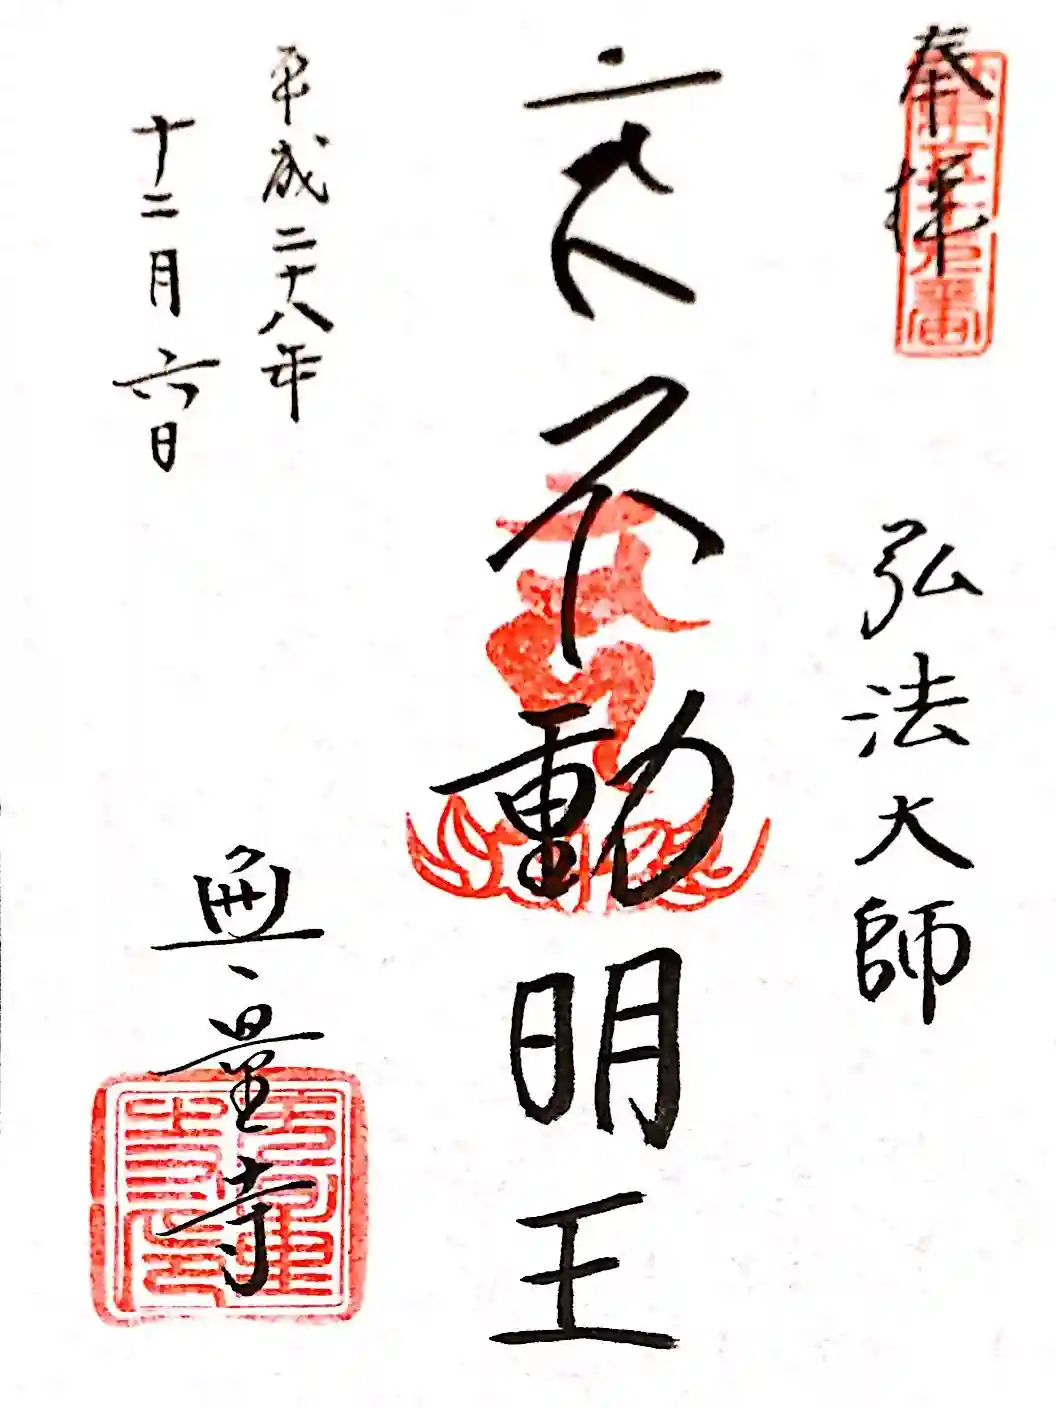 奉拝
弘法大師
不動明王
平成二十八年
十二月六日
無量寺